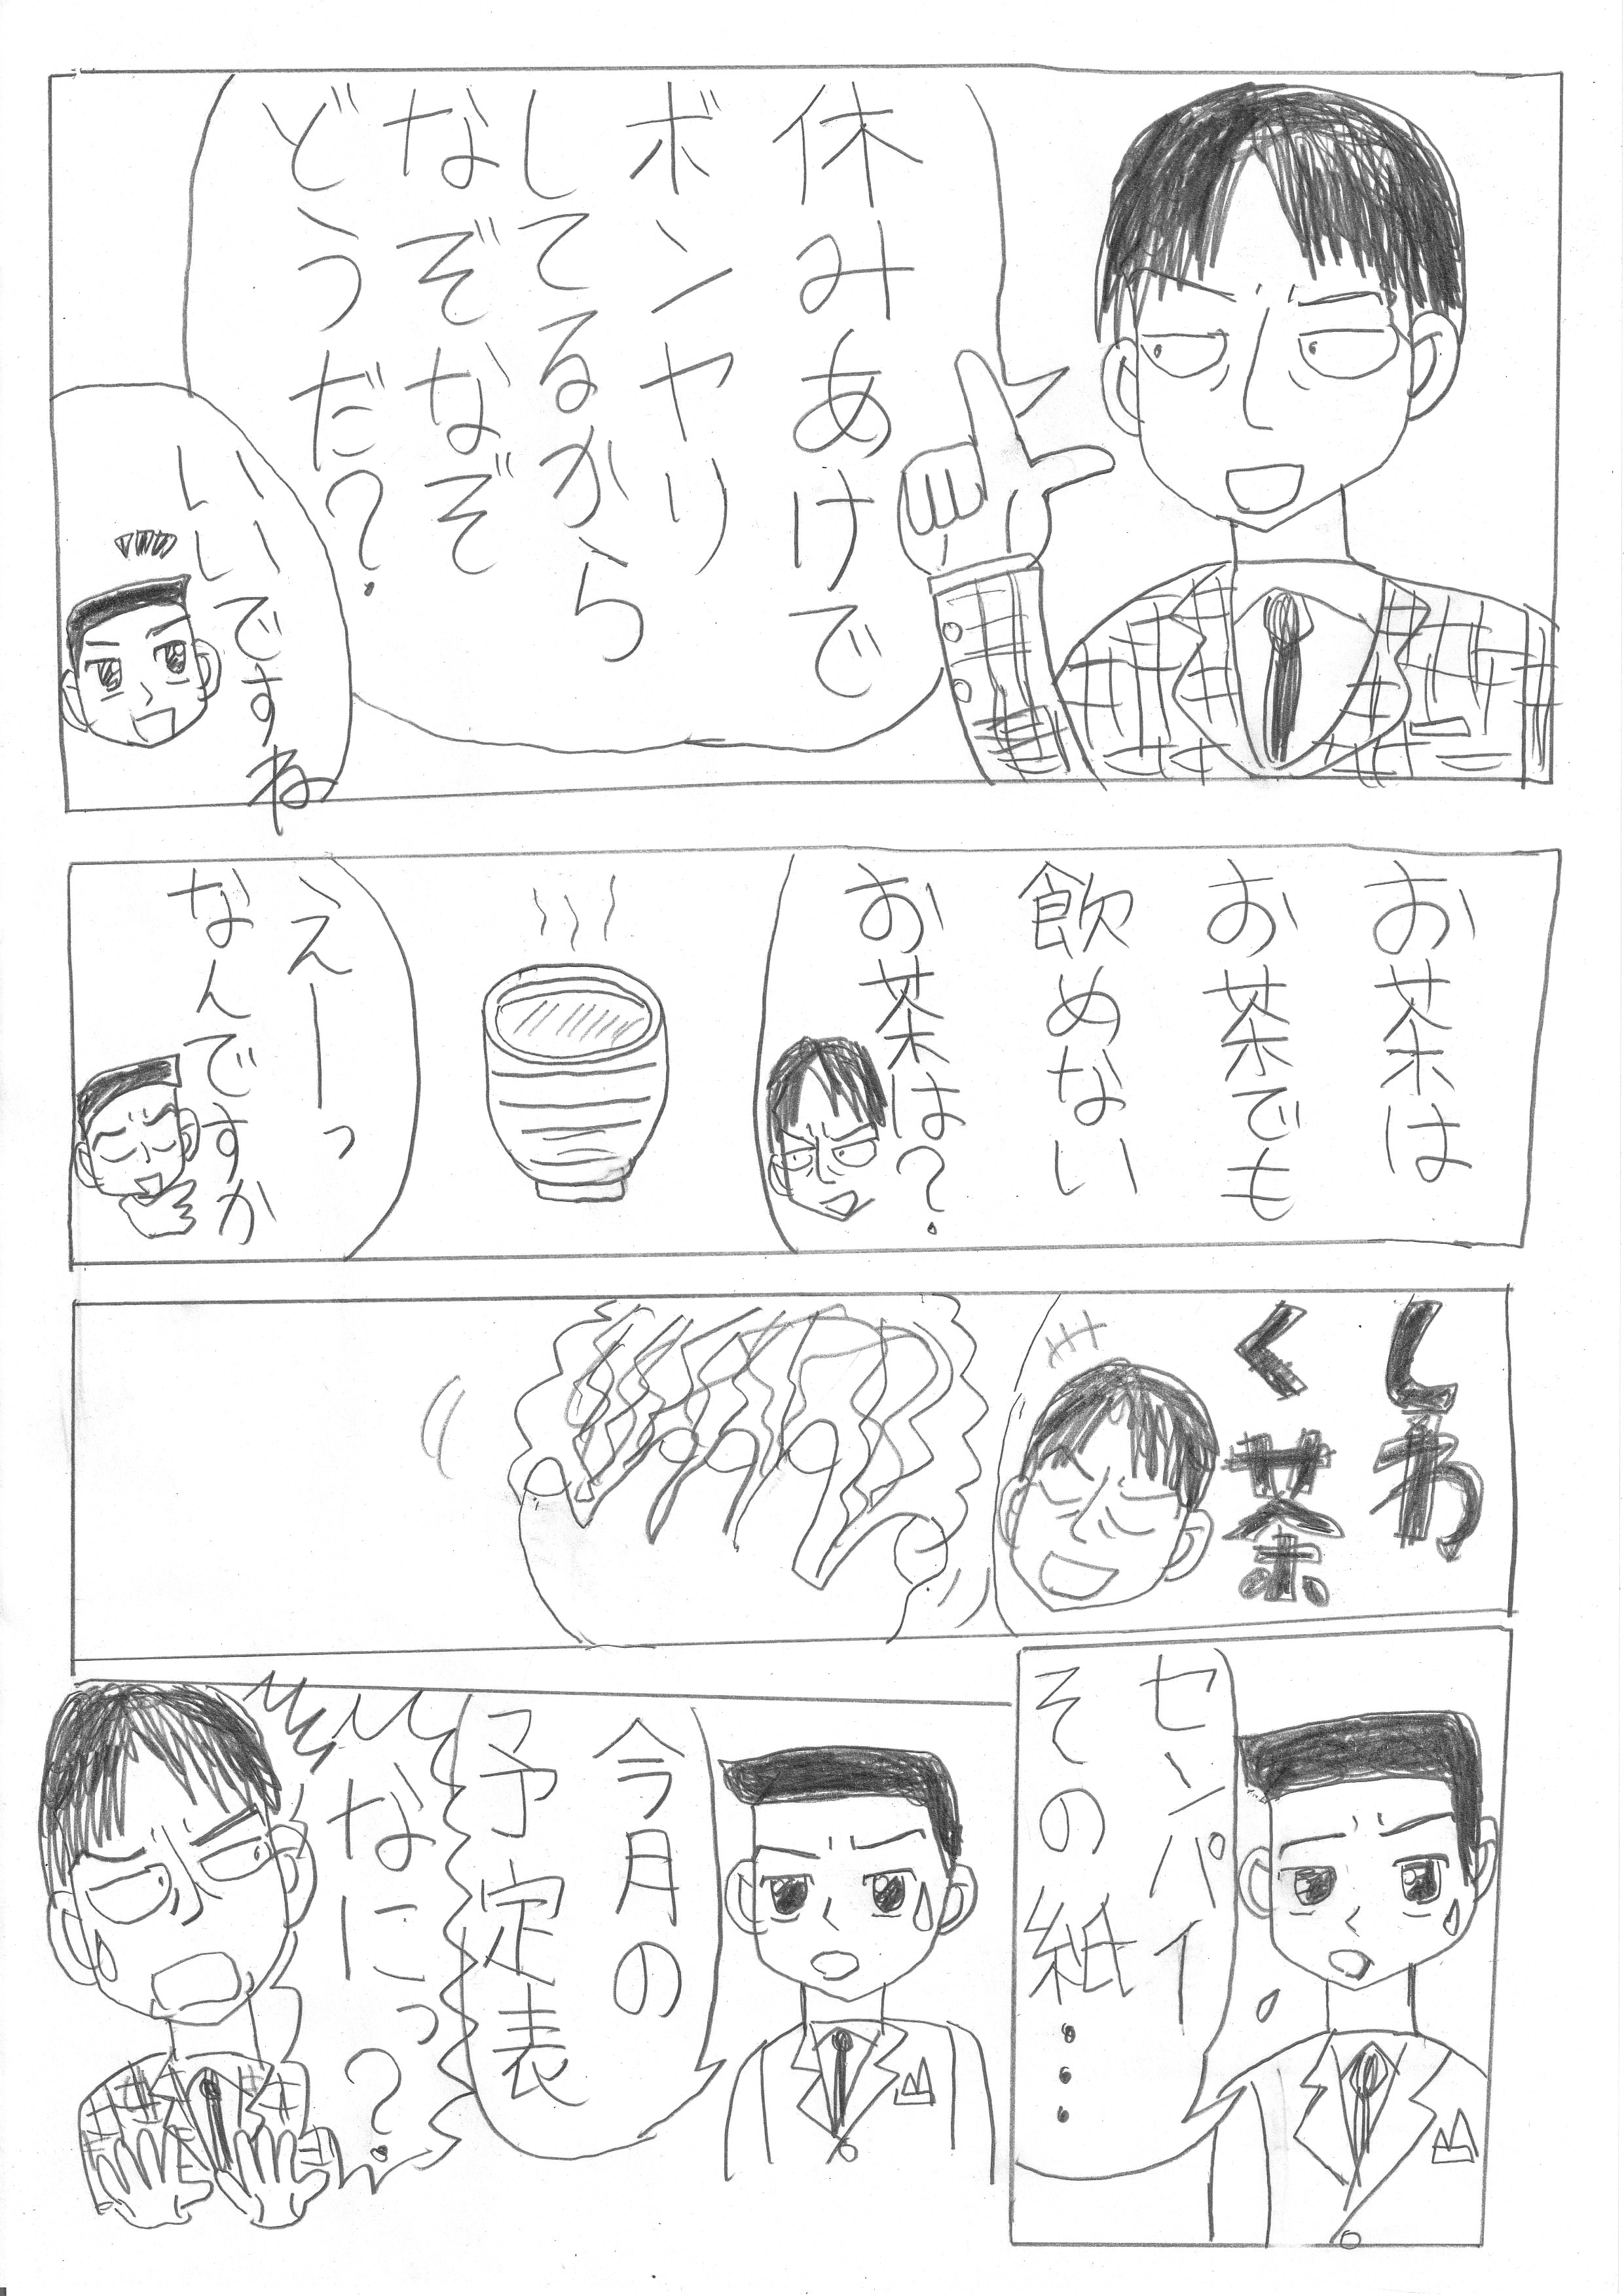 休みあけで
ボンヤリ
してるから
なぞなぞ
どうだ?
いいですね
お茶は
お茶でも
飲めない
お茶は?
えーーっ
なんですか
しわ
く茶
センパイ
その紙…
今月の
予定表
なにっ?